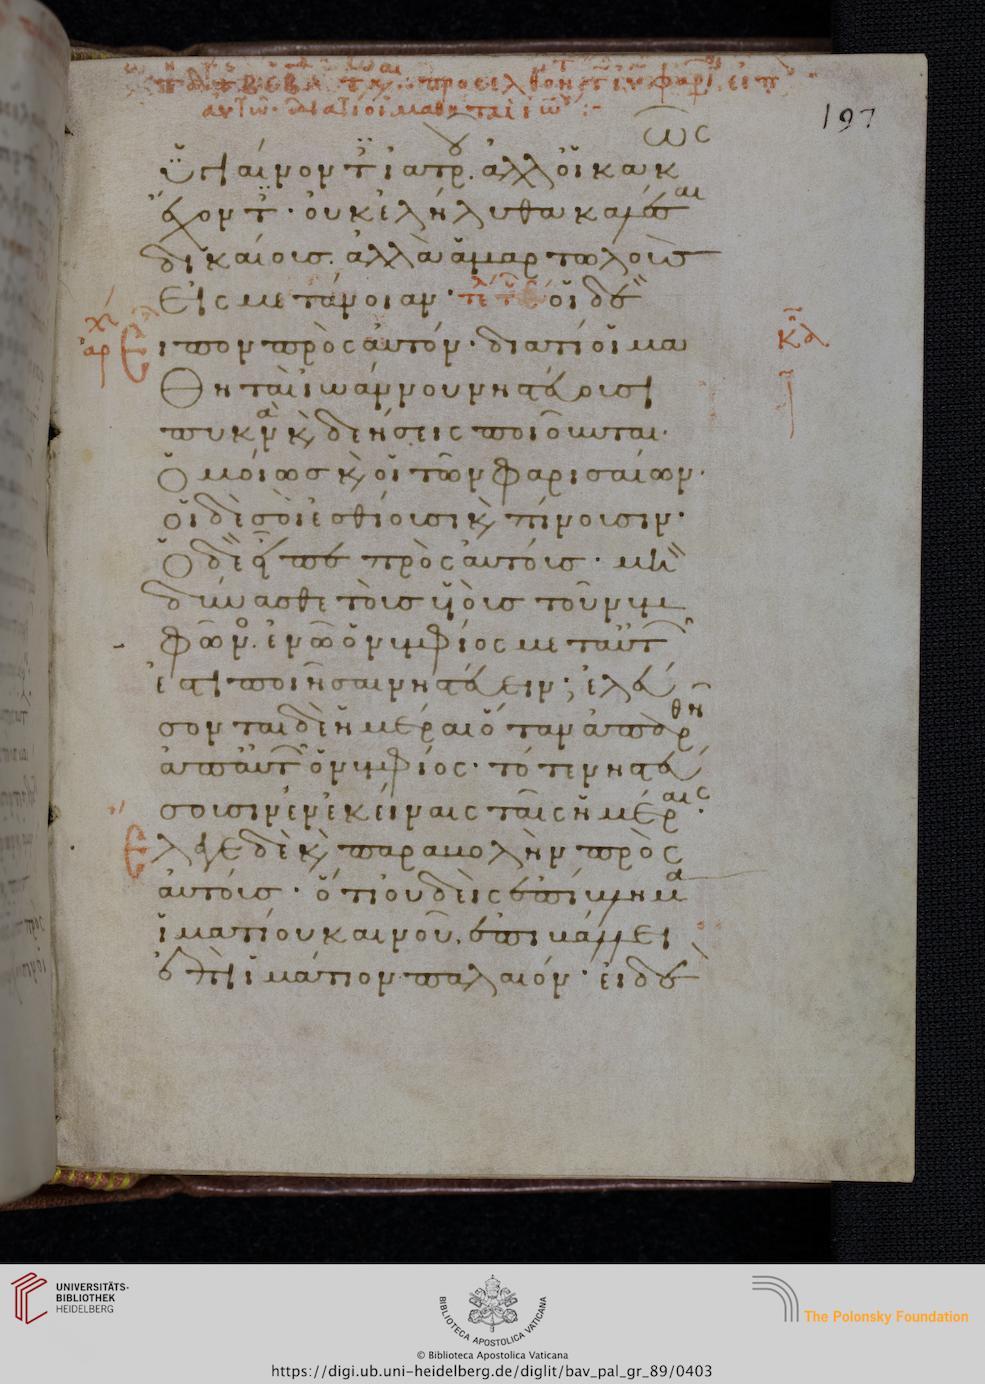 αὐτῶ· διατί οἱ μαθηταὶ ἰω
197
ὑγιαίνοντ ἰατρ. ἀλλοἱ κακ
ως
ἔχοντ· οὐκ ἐλήλυθα καλέσαι
δικαίους. ἀλλὰ ἁμαρτωλοὺς
Εἰς μετάνοιαν· τέ οἱ δὲ
Εἶπον πρὸς αὐτόν· διατί οἱ μα
Θηταὶ ἰωάννου νηστεύουσι
πυκνὰ κ δεήσεις ποιοῦνται·
Ὁμοίως κ οἱ τῶν φαρισαίων·
οἱ δὲ σοὶ ἐσθίουσι κ πίνουσιν·
Ὁ δὲ εἶπε πρὸς αὐτούς· μὴ
δύνασθε τοὺς υἱοὺς τοῦ νυμ
φῶν. ἐν ὧ ὁ νυμφίος μετ αὐτ
ἐστι ποιῆσαι νηστεύειν; ἐλεύ
σονται δὲ ἡμέραι ὅταν ἀπαρθῆ
ἀπ αὐτ ὁ νυμφίος· τότε νηστεύ
σουσιν ἐν ἐκείναις ταῖς ἡμέραις·
Ἔλεγε δὲ κ παραβολὴν πρὸς
αὐτούς· ὅτι οὐδεὶς ἐπίβλημα
ἱματίου καινοῦ. ἐπιβάλλει
ἐπὶ ἱμάτιον παλαιόν· εἰ δὲ
UNIVERSITÄTS-
BIBLIOTHEK
HEIDELBERG
BIBLIOTECA APOSTOLICA VATICANA
The Polonsky Foundation
© Biblioteca Apostolica Vaticana
https://digi.ub.uni-heidelberg.de/diglit/bav_pal_gr_89/0403